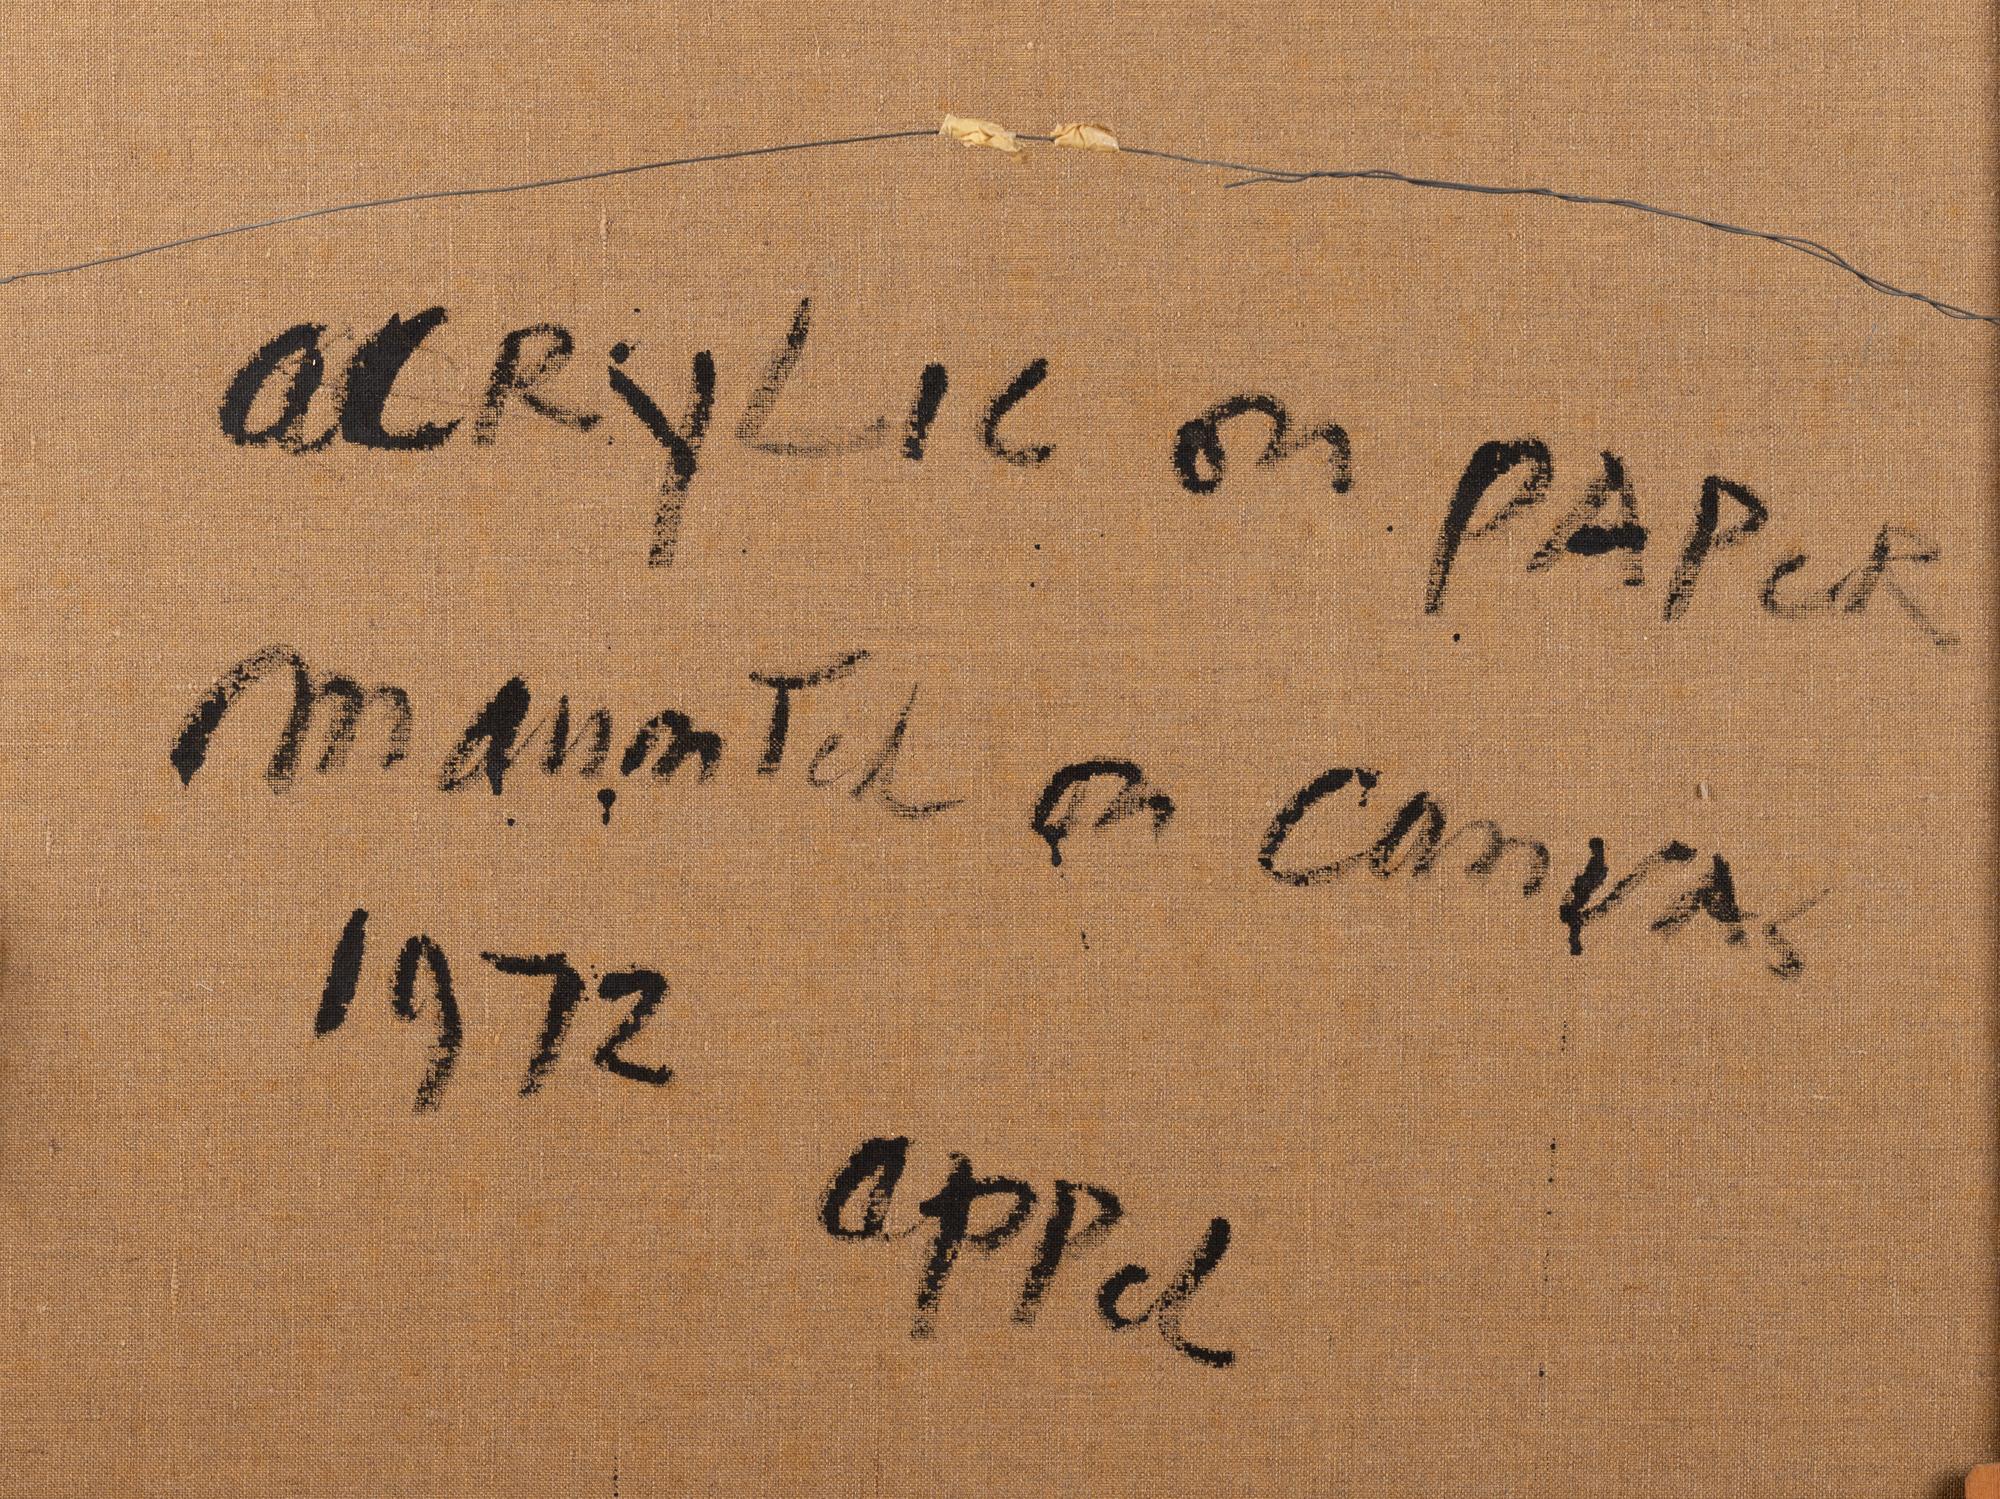 acRyLic on PAPeR
mamonTel on Canvas
1972
appel